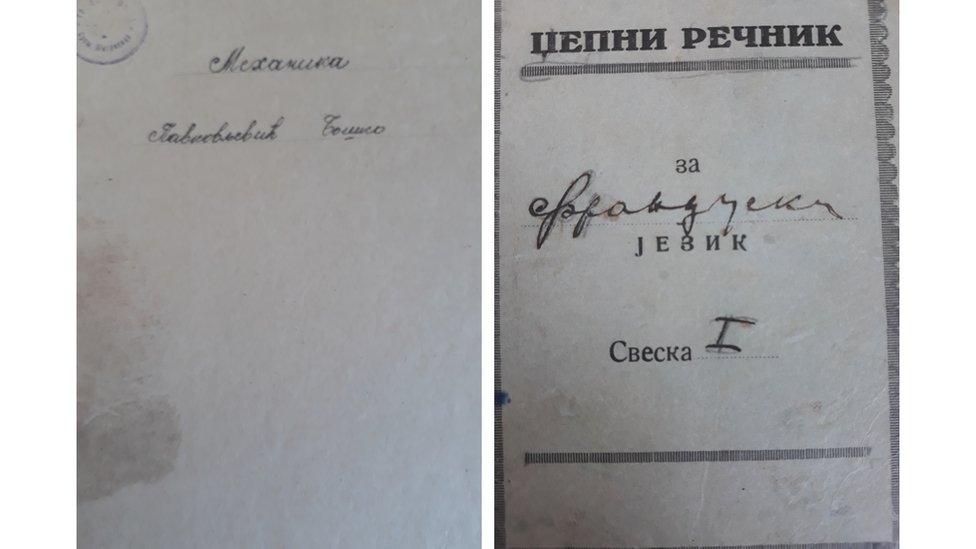 Механика
Павковљевић Бошко
ЏЕПНИ РЕЧНИК
за
Француски
ЈЕЗИК
Свеска I